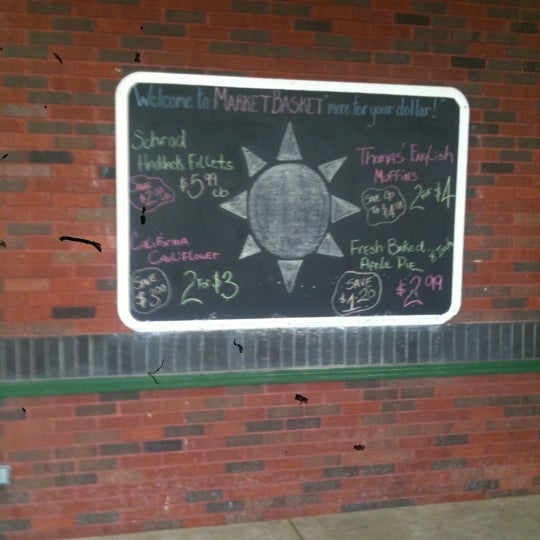 Welcome to MARKET BASKET "more for your dollar!"
Schrod
Haddock Fillets
SAVE
$5.99 lb
Thomas' English
MUFFINS
SAVE UP
TO $4.58
2 for $4
California
Cauliflower
SAVE
$3.00
2 FOR $3
Fresh Baked
Apple Pie
SAVE
$1.20
$2.99